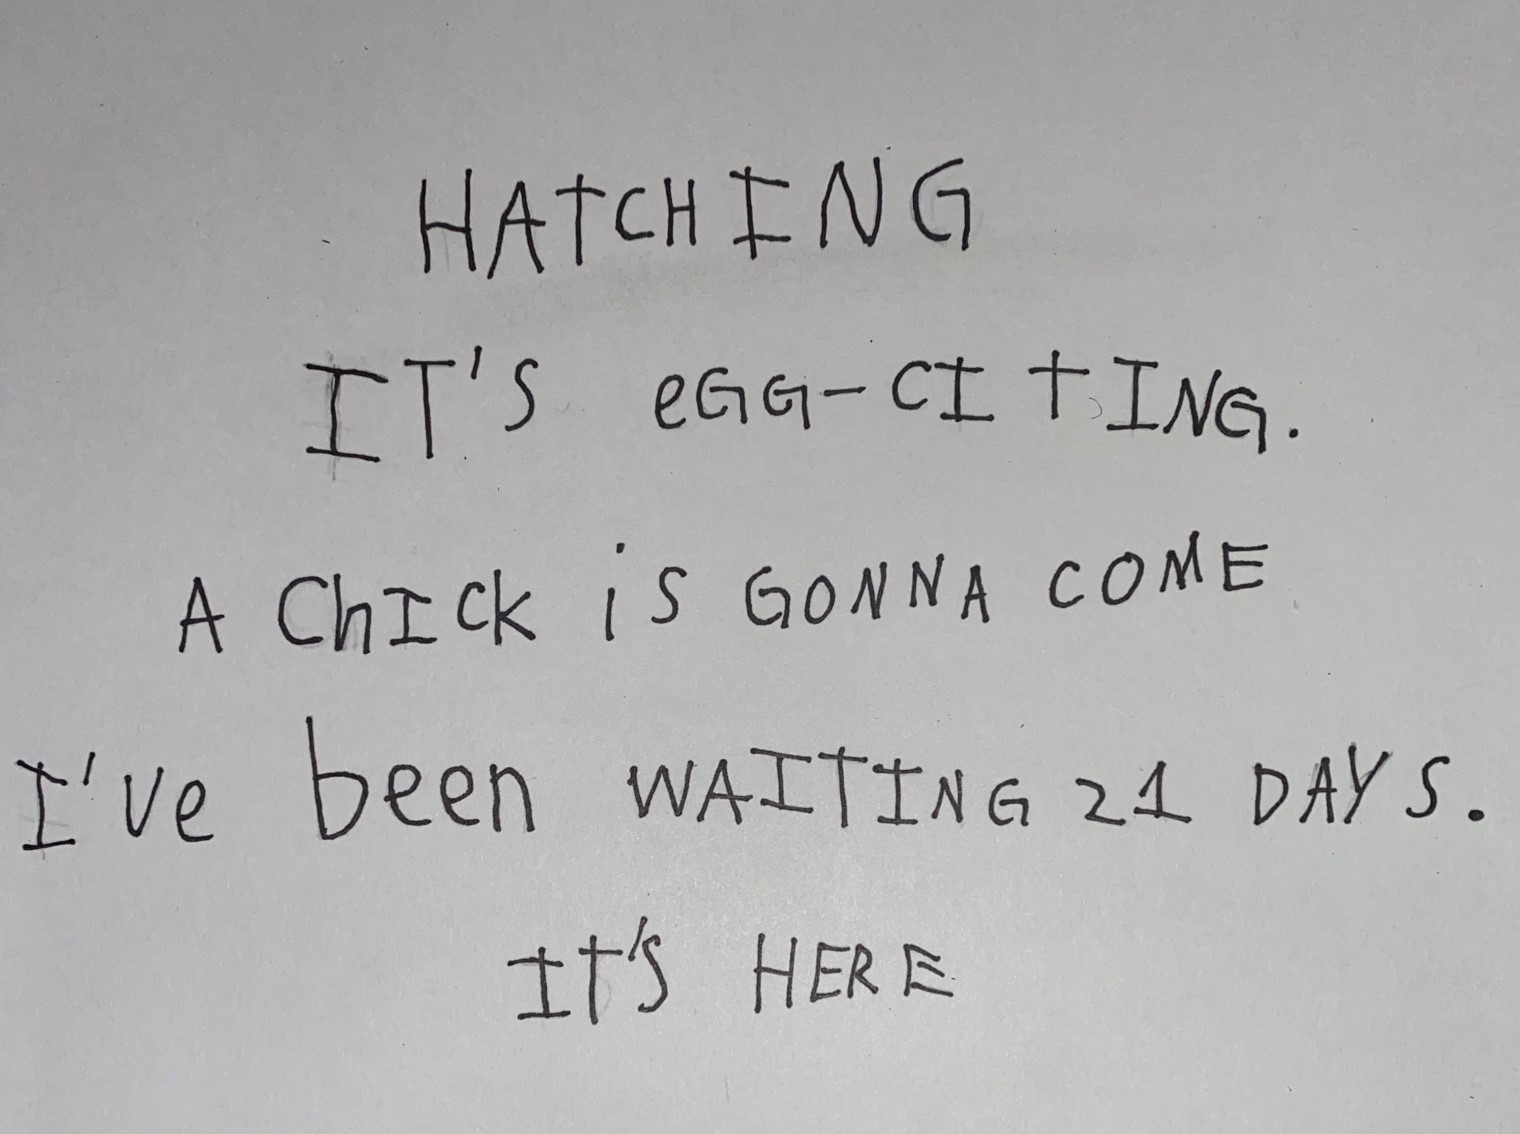 HATCHING
IT'S eGG-CITING.
A ChICk iS GONNA COME
I've been WAITING 21 DAYS.
IT'S HERE